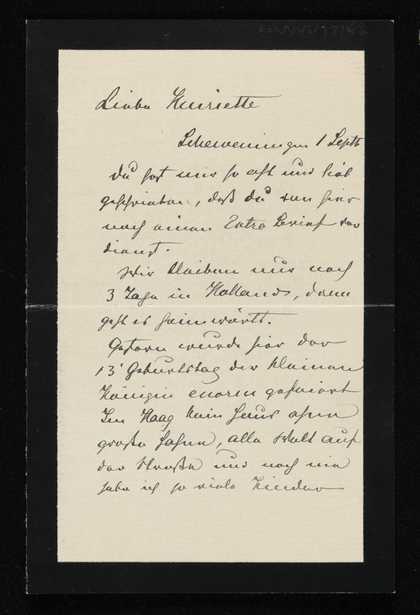 Liebe Henriette
Scheveningen 1 Septb
Du hast uns so oft und lieb
geschrieben, daß du von hier
noch einen Extra Brief ver
dienst.
Wir bleiben nur noch
3 Tage in Holland, dann
geht es heimwärts.
Gestern wurde hier der
13' Geburtstag der kleinen
Königin enorm gefeiert
Im Haag kein Haus ohne
große Fahne, alle Welt auf
der Straße und noch nie
habe ich so viele Kinder